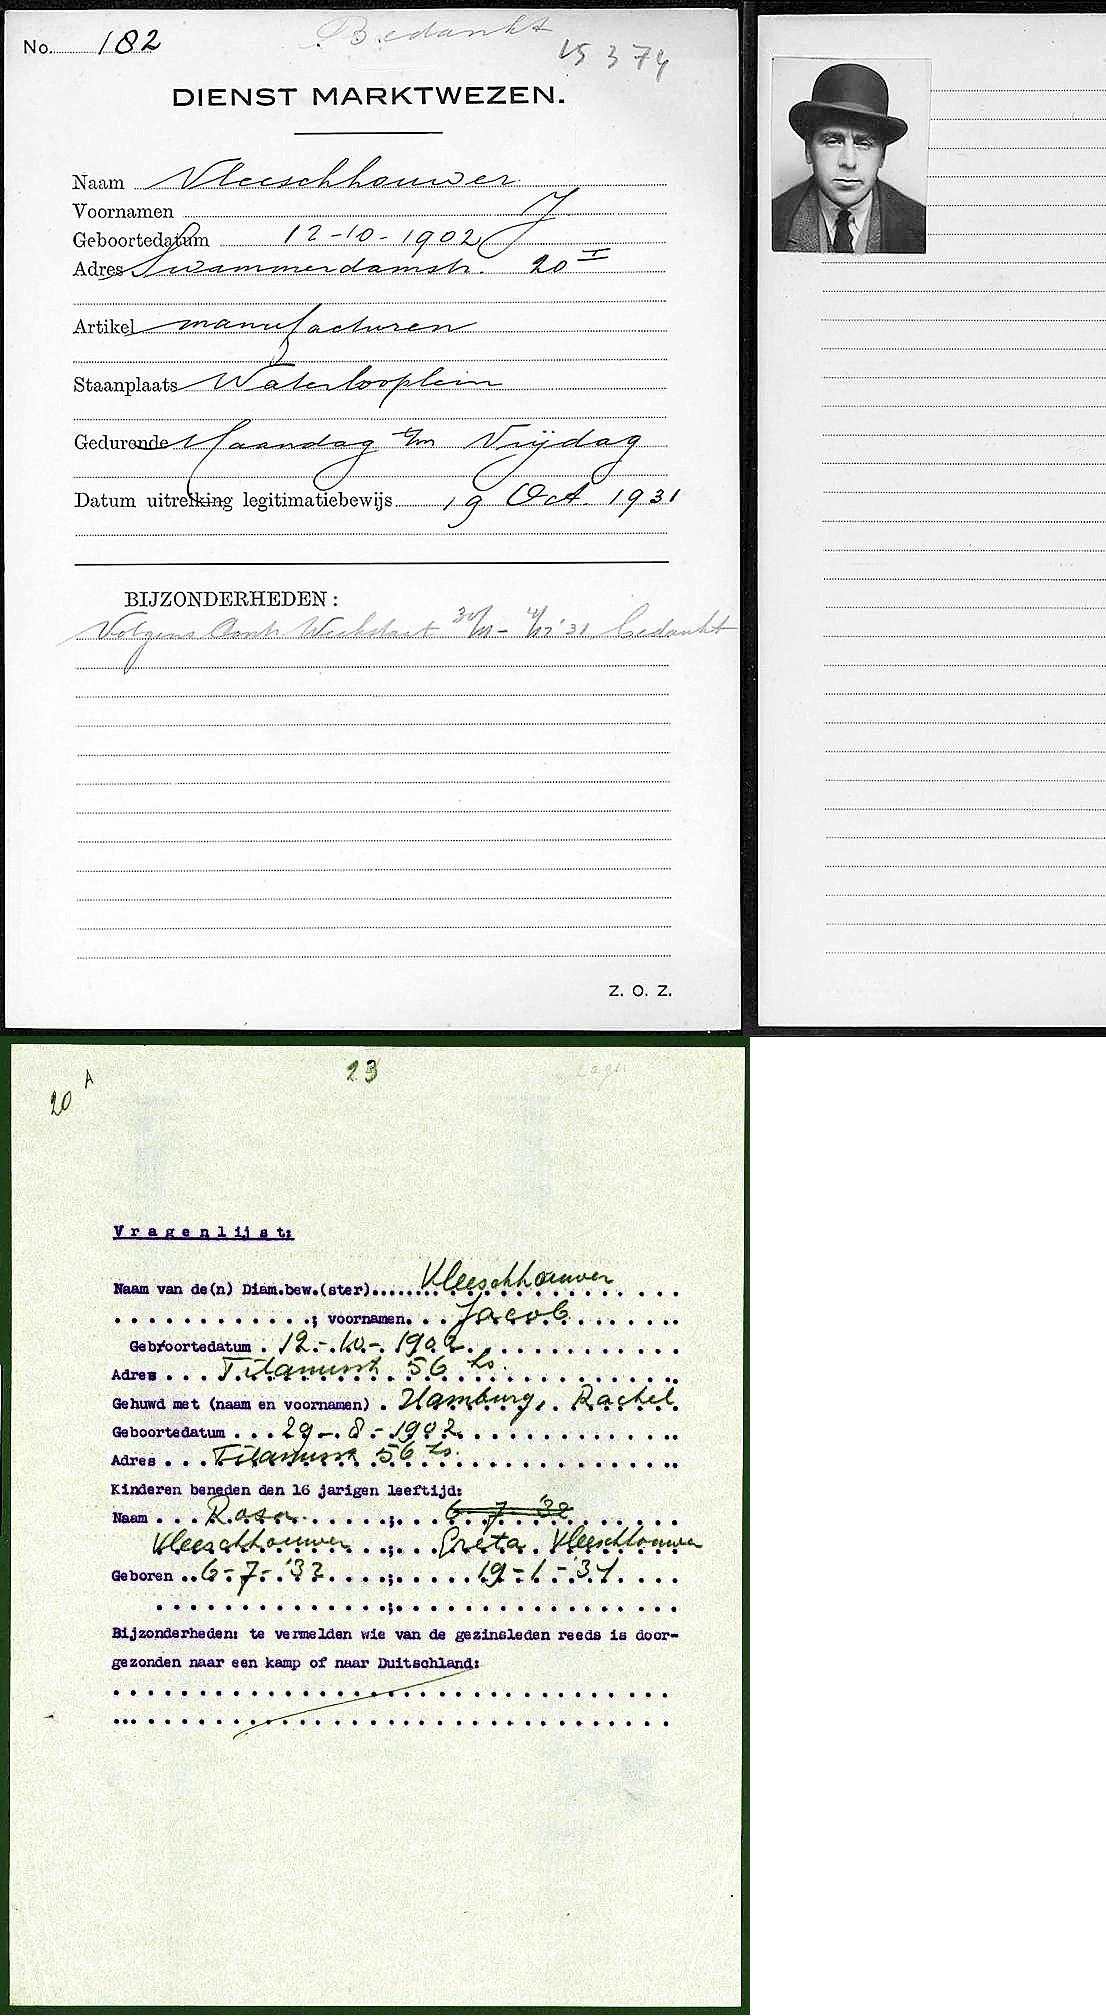 No. 182
Bedankt
15 3 74
DIENST MARKTWEZEN.
Naam Vleeschhouwer
Voornamen J
Geboortedatum 12-10-1902
Adres Swammerdamstr. 20 I
Artikel manufacturen
Staanplaats Waterlooplein
Gedurende Maandag t/m Vrijdag
Datum uitreiking legitimatiebewijs 19 Oct. 1931
BIJZONDERHEDEN:
Volgens Contr Weekstaat 30/11 - 4/12 '31 bedankt
Z. O. Z.
20 A
23
Vragenlijst:
Naam van de(n) Diam.bew.(ster) Vleeschhouwer
; voornamen. Jacob
Geboortedatum 12-10-1902
Adres Titanusstr 56 hs.
Gehuwd met (naam en voornamen) Hamburg, Rachel
Geboortedatum 29-8-1902
Adres 56 hs.
Kinderen beneden den 16 jarigen leeftijd:
Naam Rosa ; 6-7-'32
Vleeschhouwer ; Greta Vleeschhouwer
Geboren 6-7-'32 ; 19-1-'31
;
Bijzonderheden: te vermelden wie van de gezinsleden reeds is door-
gezonden naar een kamp of naar Duitschland: